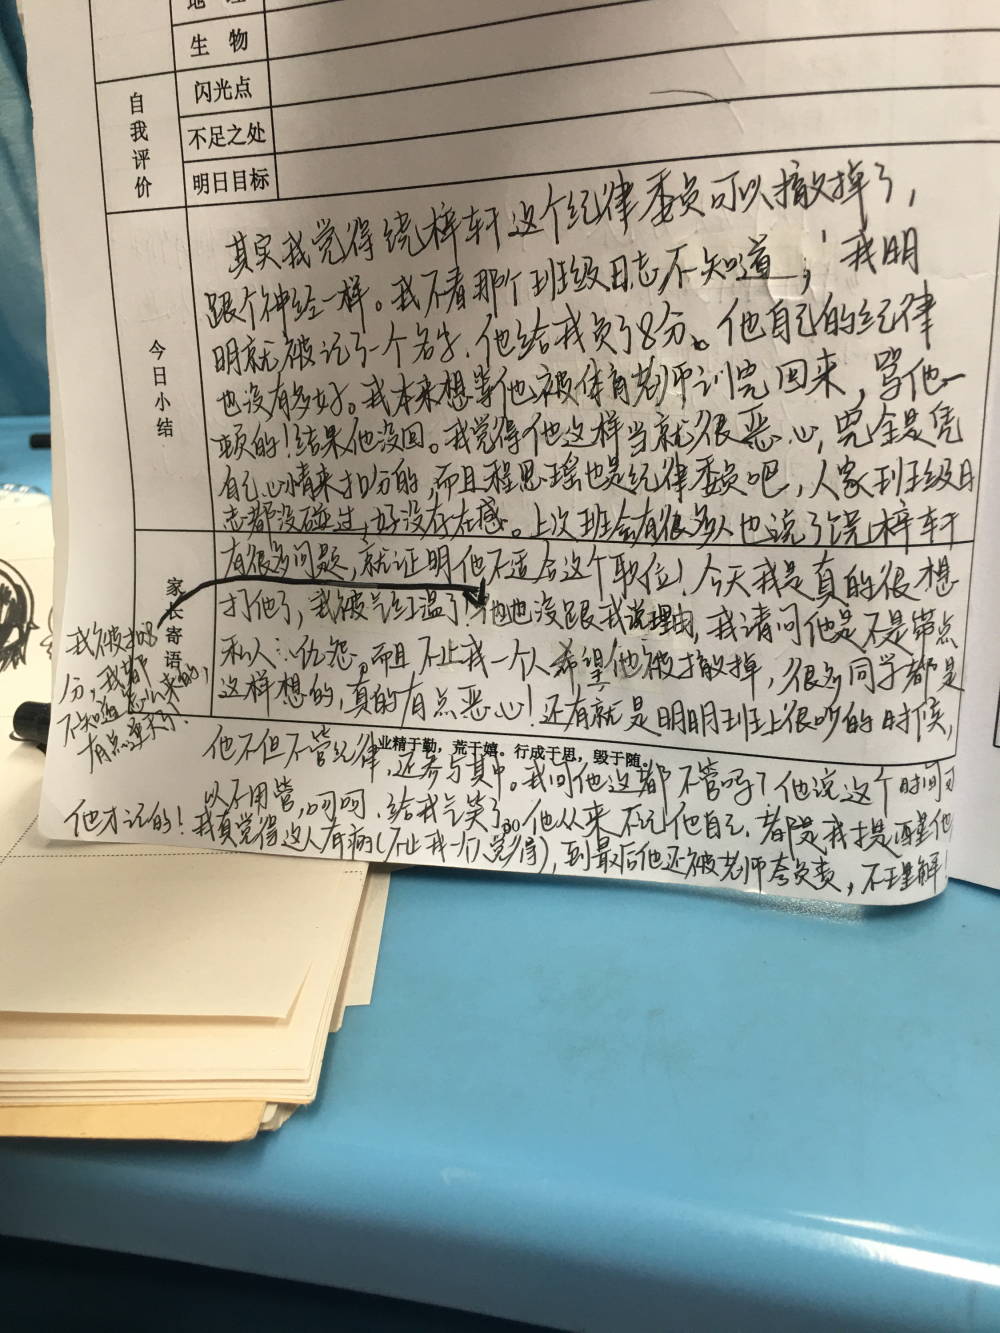 地 理
生 物
自我评价
闪光点
不足之处
明日目标
今日小结
其实我觉得饶梓轩这个纪律委员可以撤掉了,
跟个神经一样。我不看那个班级日志不知道, 我明
明就被记了一个名字,他给我负了8分。他自己的纪律
也没有多好。我本来想等他被体育老师训完回来,骂他一
顿的!结果他没回。我觉得他这样当就很恶心,完全是凭
自己心情来扣分的,而且程思瑶也是纪律委员吧,人家到班级日
志都没碰过,好没存在感。上次班会有很多人也说了饶梓轩
家长寄语
有很多问题,就证明他不适合这个职位!今天我是真的很想
打他了,我被气红温了!他也没跟我说理由,我请问他是不是带点
私人仇怨。而且不止我一个人希望他被撤掉,很多同学都是
这样想的,真的有点恶心!还有就是明明班上很吵的时候,
我被扣8
分,我都
不知道怎么来的,
有点莫名
业精于勤,荒于嬉。行成于思,毁于随。
他不但不管纪律,还参与其中。我问他这都不管吗?他说这个时间可
以不用管,呵呵,给我气笑了。他从来不记他自己,都是我提醒他
他才记的!我真觉得这人有病(不止我一个人觉得),到最后他还被老师夸负责,不理解!